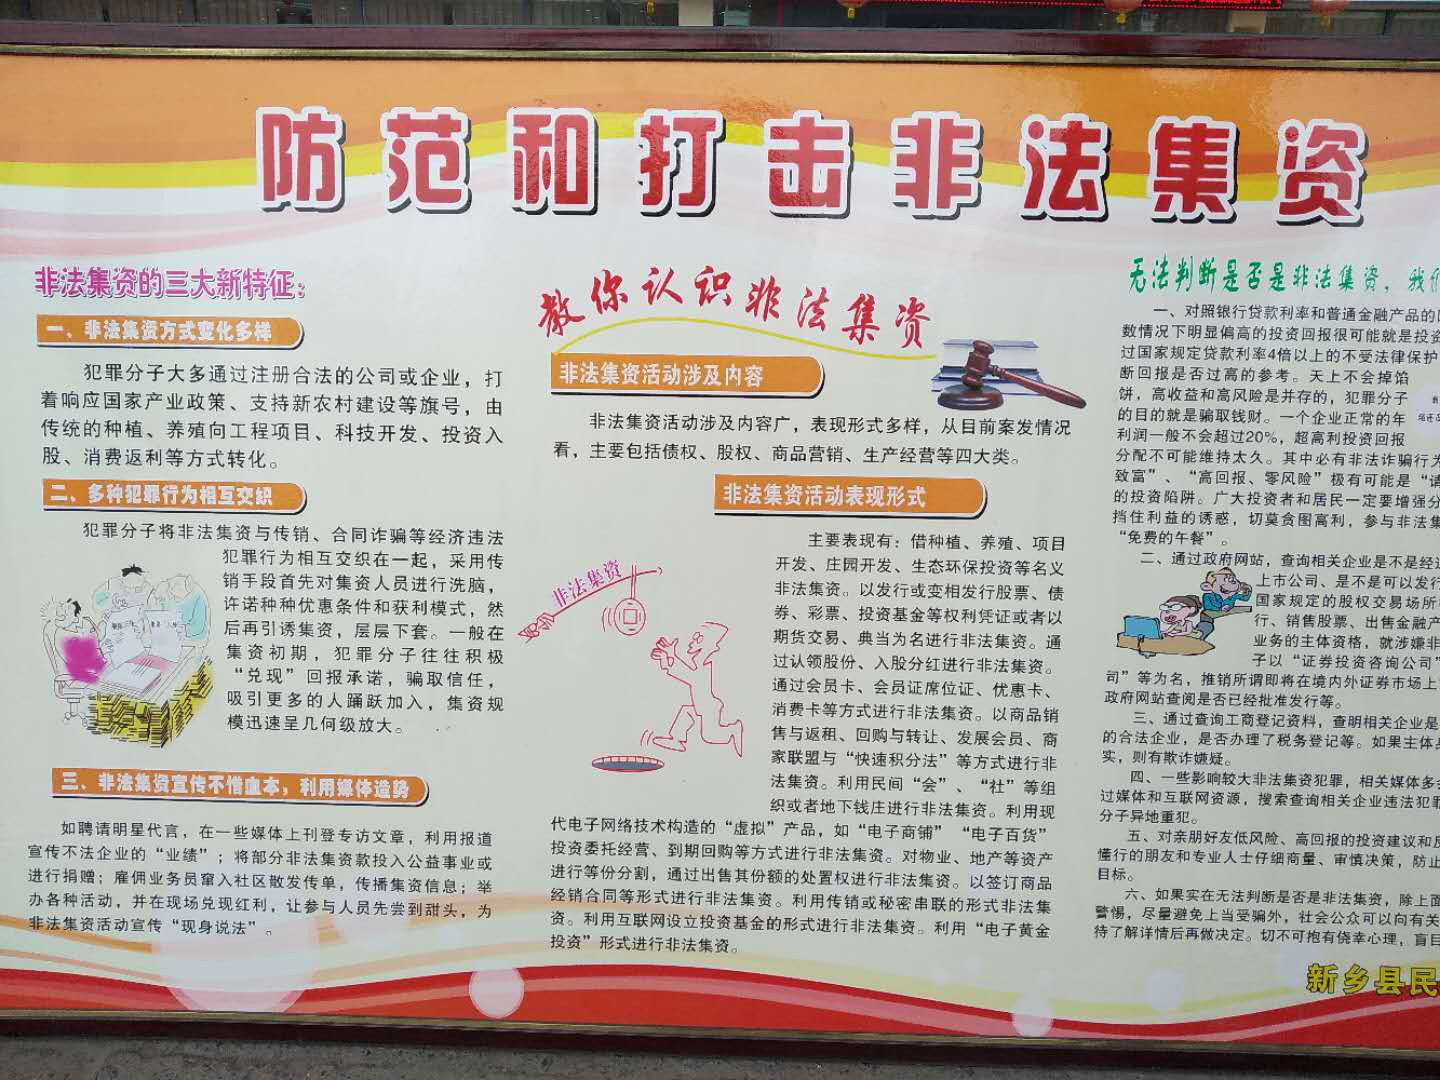 防范和打击非法集资
非法集资的三大新特征：
一、非法集资方式变化多样
犯罪分子大多通过注册合法的公司或企业，打
着响应国家产业政策、支持新农村建设等旗号，由
传统的种植、养殖向工程项目、科技开发、投资入
股、消费返利等方式转化。
二、多种犯罪行为相互交织
犯罪分子将非法集资与传销、合同诈骗等经济违法
犯罪行为相互交织在一起，采用传
销手段首先对集资人员进行洗脑，
许诺种种优惠条件和获利模式，然
后再引诱集资，层层下套。一般在
集资初期，犯罪分子往往积极
“兑现”回报承诺，骗取信任，
吸引更多的人踊跃加入，集资规
模迅速呈几何级放大。
三、非法集资宣传不惜血本，利用媒体造势
如聘请明星代言，在一些媒体上刊登专访文章，利用报道
宣传不法企业的“业绩”；将部分非法集资款投入公益事业或
进行捐赠；雇佣业务员窜入社区散发传单，传播集资信息；举
办各种活动，并在现场兑现红利，让参与人员先尝到甜头，为
非法集资活动宣传“现身说法”。
教你认识非法集资
非法集资活动涉及内容
非法集资活动涉及内容广，表现形式多样，从目前案发情况
看，主要包括债权、股权、商品营销、生产经营等四大类。
非法集资活动表现形式
非法集资
主要表现有：借种植、养殖、项目
开发、庄园开发、生态环保投资等名义
非法集资。以发行或变相发行股票、债
券、彩票、投资基金等权利凭证或者以
期货交易、典当为名进行非法集资。通
过认领股份、入股分红进行非法集资。
通过会员卡、会员证席位证、优惠卡、
消费卡等方式进行非法集资。以商品销
售与返租、回购与转让、发展会员、商
家联盟与“快速积分法”等方式进行非
法集资。利用民间“会”、“社”等组
织或者地下钱庄进行非法集资。利用现
代电子网络技术构造的“虚拟”产品，如“电子商铺”“电子百货”
投资委托经营、到期回购等方式进行非法集资。对物业、地产等资产
进行等份分割，通过出售其份额的处置权进行非法集资。以签订商品
经销合同等形式进行非法集资。利用传销或秘密串联的形式非法集
资。利用互联网设立投资基金的形式进行非法集资。利用“电子黄金
投资”形式进行非法集资。
无法判断是否是非法集资，我们
一、对照银行贷款利率和普通金融产品的
数情况下明显偏高的投资回报很可能就是投资
过国家规定贷款利率4倍以上的不受法律保护
断回报是否过高的参考。天上不会掉馅
饼，高收益和高风险是并存的，犯罪分子
的目的就是骗取钱财。一个企业正常的年
利润一般不会超过20%，超高利投资回报
分配不可能维持太久。其中必有非法诈骗行为
致富”、“高回报、零风险”极有可能是“请
的投资陷阱。广大投资者和居民一定要增强分
挡住利益的诱惑，切莫贪图高利，参与非法集
“免费的午餐”。
二、通过政府网站，查询相关企业是不是经过
上市公司、是不是可以发行
国家规定的股权交易场所
行、销售股票、出售金融产
业务的主体资格，就涉嫌非
子以“证券投资咨询公司”
司”等为名，推销所谓即将在境内外证券市场上
政府网站查阅是否已经批准发行等。
三、通过查询工商登记资料，查明相关企业是
的合法企业，是否办理了税务登记等。如果主体
实，则有欺诈嫌疑。
四、一些影响较大非法集资犯罪，相关媒体多
过媒体和互联网资源，搜索查询相关企业违法犯罪
分子异地重犯。
五、对亲朋好友低风险、高回报的投资建议和反
懂行的朋友和专业人士仔细商量、审慎决策，防止
目标。
六、如果实在无法判断是否是非法集资，除上面
警惕，尽量避免上当受骗外，社会公众可以向有关
待了解详情后再做决定。切不可抱有侥幸心理，盲目
新乡县民